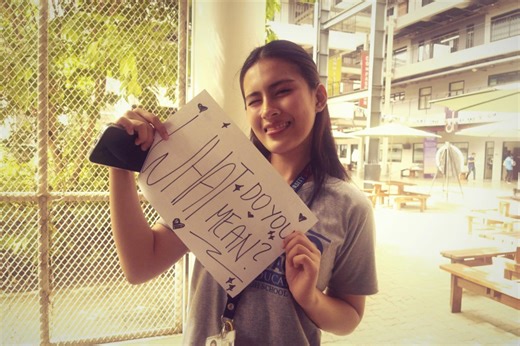 WHAT DO YOU
MEAN?